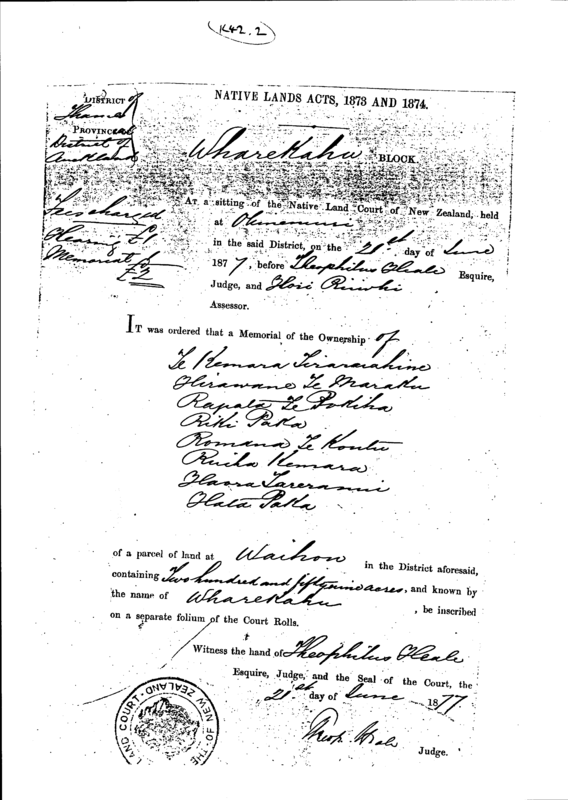 (K42.2)
NATIVE LANDS ACTS, 1873 AND 1874.
DISTRICT of
Thames
PROVINCIAL
District of
Auckland
Wharekahu BLOCK.
Fees charged
Hearing £1
Memorial
£2
AT a sitting of the Native Land Court of New Zealand, held
at Ohinemuri
in the said District, on the 21st day of June
1877, before Theophilus Heale Esquire,
Judge, and Hori
Assessor.
IT was ordered that a Memorial of the Ownership of
Te Kemara Tirarauahine
Hirawane Te Maraku
Rapata Te Pokiha
Riki Paka
Romana Te
Ruiha Kemara
Haora Tareranui
Hata Paka
of a parcel of land at Waihou in the District aforesaid,
containing Two hundred and fifty nine acres, and known by
the name of Wharekahu, be inscribed
on a separate folium of the Court Rolls.
Witness the hand of Theophilus Heale
Esquire, Judge, and the Seal of the Court, the
21st day of June 1877
Theop. Heale Judge.
LAND COURT OF NEW ZEALAND